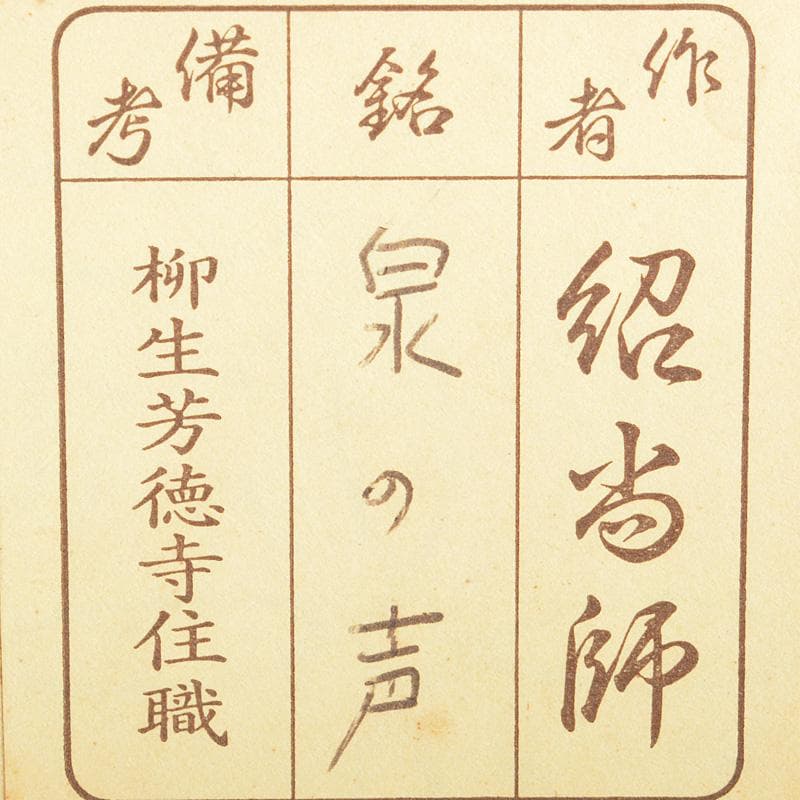 作者
紹尚師
銘
泉の声
備考
柳生芳徳寺住職